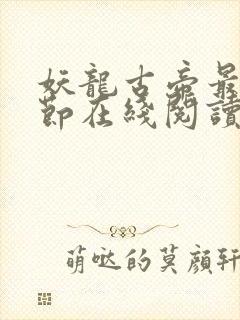 妖龍古帝最
節在綫閱讀
萌哒的莫顔轩